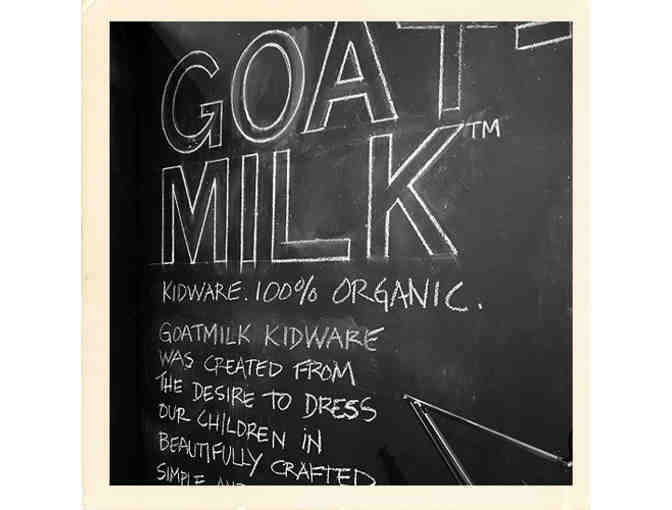 GOAT-
MILK™
KIDWARE. 100% ORGANIC.
GOATMILK KIDWARE
WAS CREATED FROM
THE DESIRE TO DRESS
OUR CHILDREN IN
BEAUTIFULLY CRAFTED
SIMPLE AND